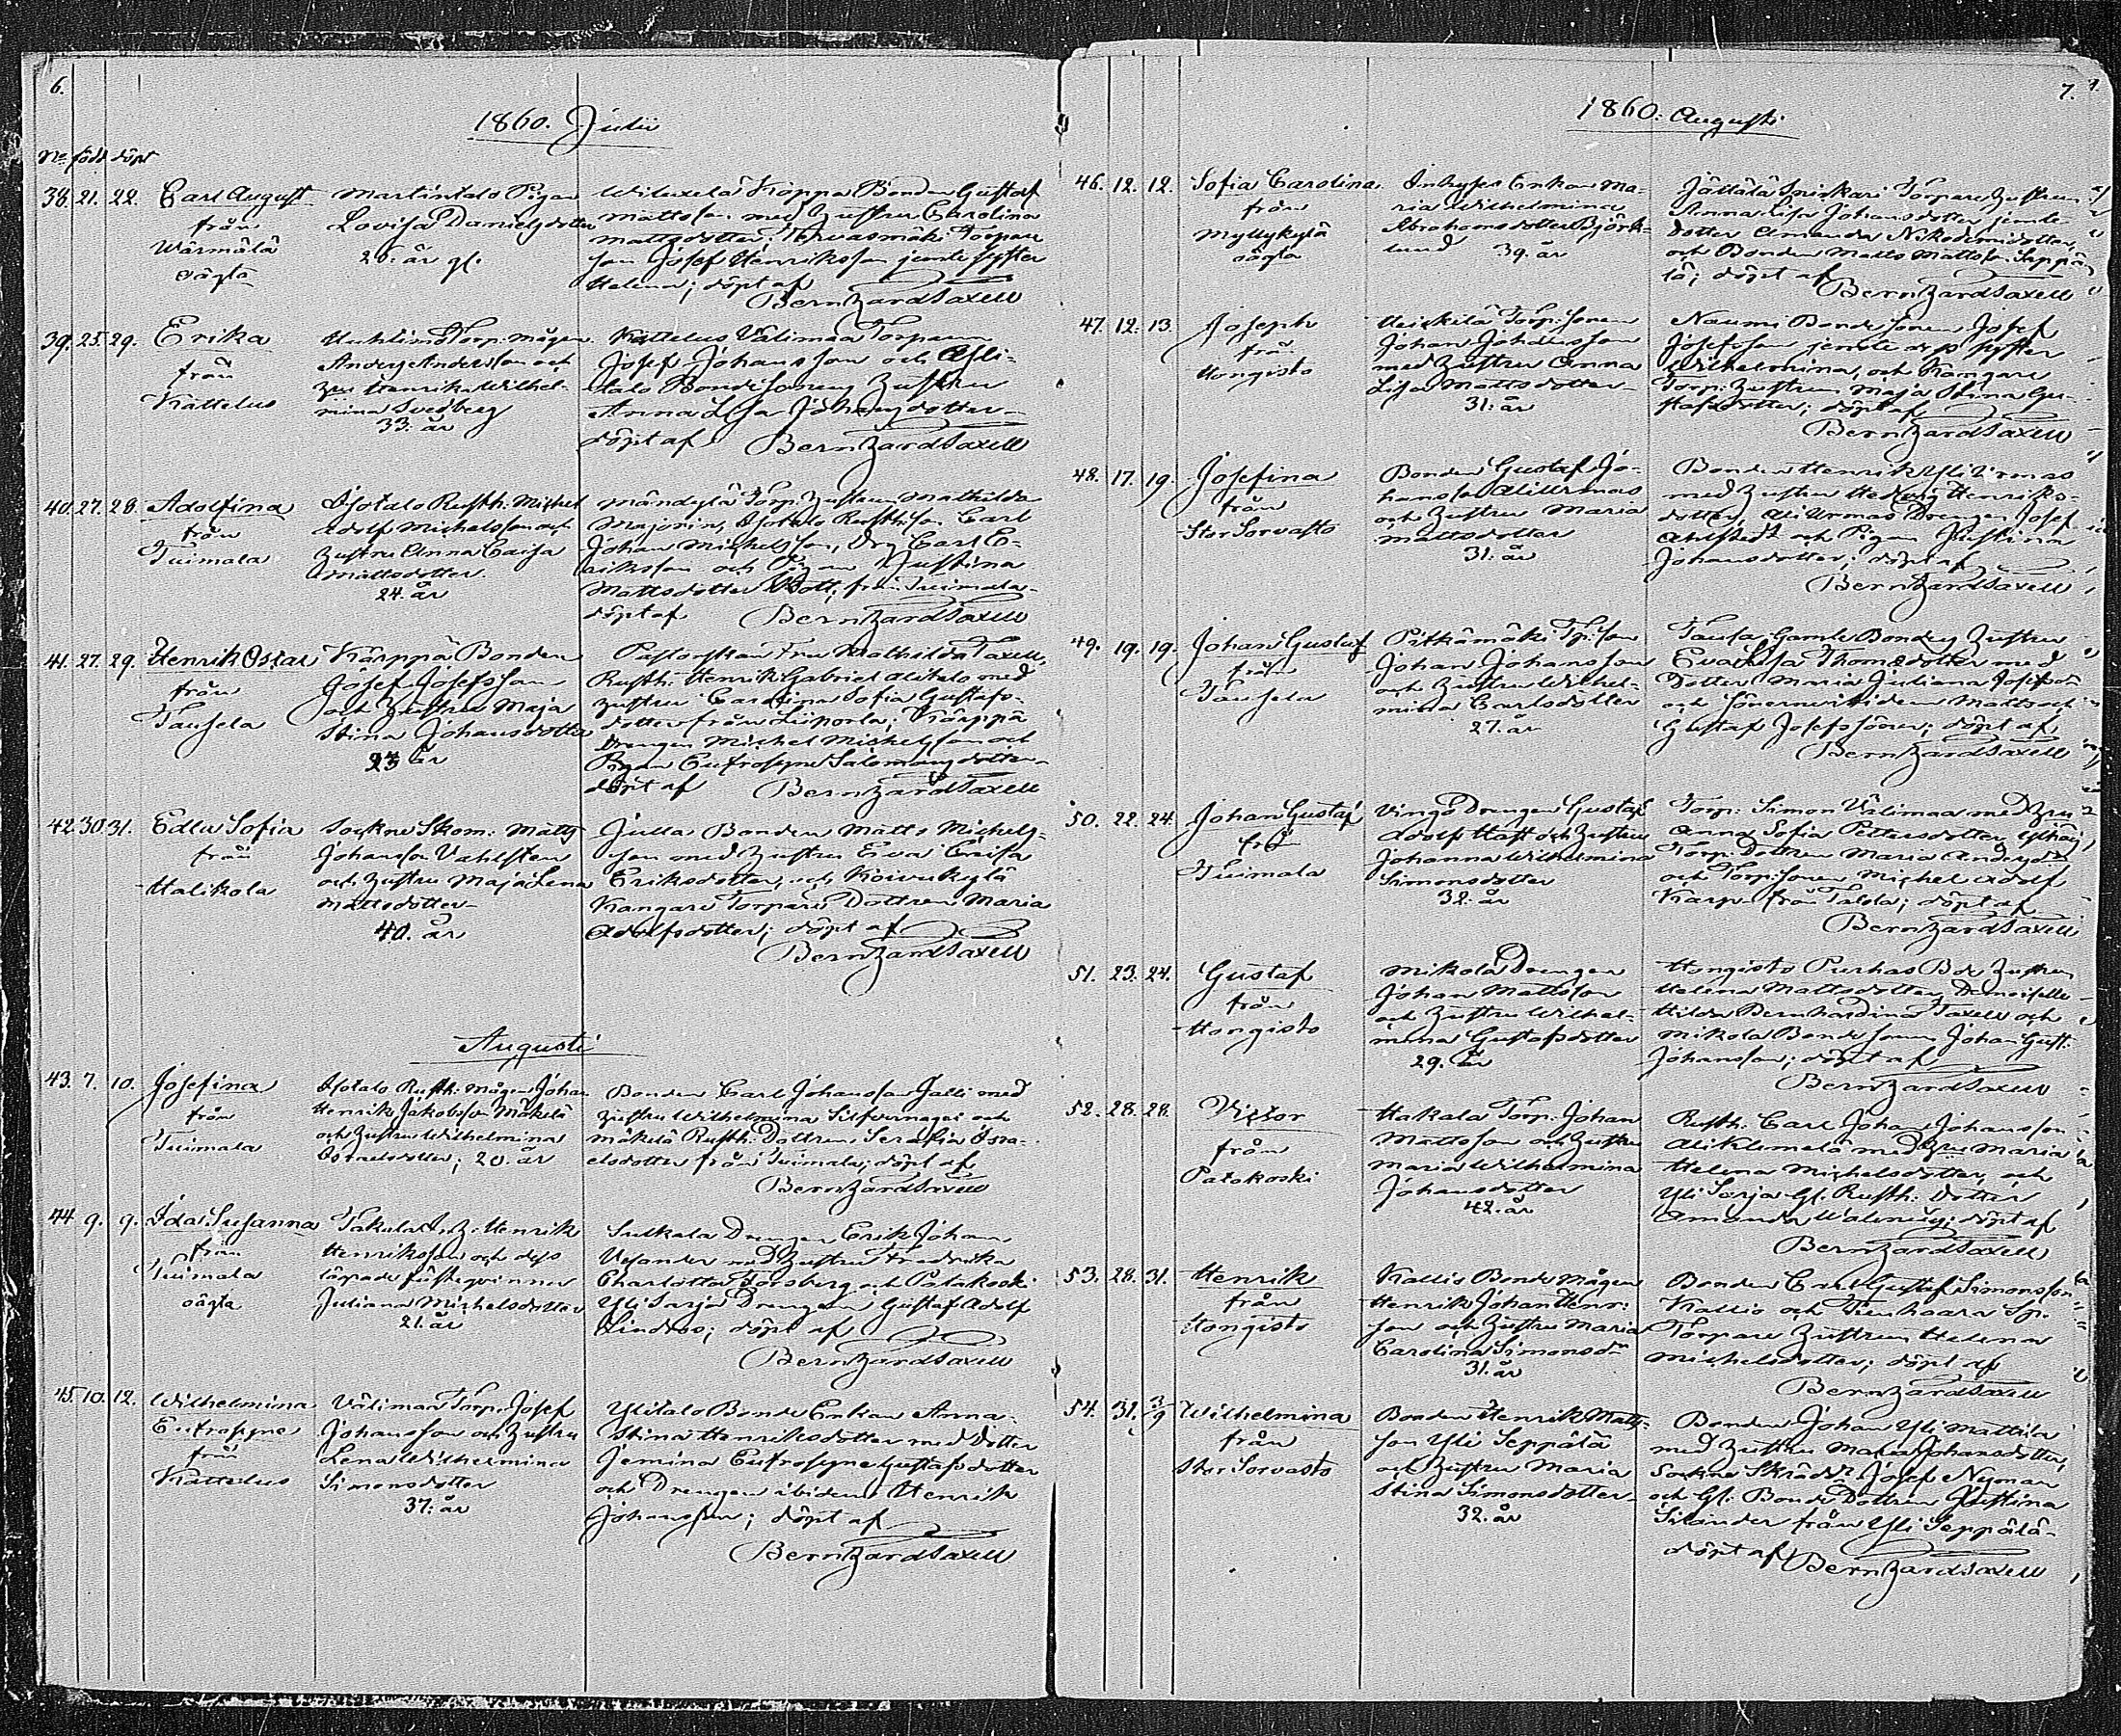 6.
1860. Julii
No född döpt
38. 21. 22. Carl August
från
Wärmälä
oägta
Martintalo Pigan
Lovisa Danielsdotter
26. år gl.
Bonden Gustaf
Mattsson med Hustru Carolina
Mattsdotter; Torpare
son Josef Henriksson jemte syster
Helena; döpt af
Bernhard Taxell
39. 25. 29. Erika
från
Kättelus
Torp. mågen
Anders Andersson och
Hu Henrika Wilhel-
mina Svedberg
33. år
Kättelus Välimaa Torparen
Josef Johansson och Yli-
talo Bondesonens Hustru
Anna Lisa Johansdotter
döpt af Bernhard Taxell
40. 27. 28. Adolfina
från
Tuimala
Isotalo Rusth. Michel
Adolf Michelsson och
Hustru Anna Caisa
Mattsdotter.
24. år
Torp. Hustrun Mathilda
Isotalo Rusth. Son Carl
Johan Michelsson, Drg Carl E-
riksson och Pigan Justina
Mattsdotter från Tuimala
döpt af Bernhard Taxell
41. 27. 29. Henrik Oskar
från
Tausela
Kärppä Bonden
Josef Josefsson
och Hustru Maja
Stina Johansdotter
23 år
Pastorskan Fru Mathilda Taxell,
Rusth. Henrik Gabriel Alitalo med
Hustru Carolina Sofia Gustafs-
dotter från; Kärppä
Drengen Michel Michelsson och
Pigan Eufrosyne Salomonsdotter
döpt af Bernhard Taxell
42. 30. 31. Edla Sofia
från
Halikola
Sockne Skom. Matts
Johansson Vahlsten
och Hustru Maja Lena
Mattsdotter
40. år
Julla Bonden Matts Michels-
son med Hustru Eva Caisa
Eriksdotter, och Koivukylä
Kangare Torpare Dottren Maria
Adolfsdotter; döpt af
Bernhard Taxell
Augusti
43. 7. 10. Josefina
från
Tuimala
Isotalo Rusth. mågen Johan
Henrik Jakobsson Mäkelä
och Hustru Wilhelmina
Israelsdotter; 20. år
Bonden Carl Johansson Jalli med
Hustru Wilhelmina och
Mäkelä Rusth. Dottren Serafia Isra-
elsdotter från Tuimala; döpt af
Bernhard Taxell
44. 9. 9. Ida Susanna
från
Tuimala
oägta
Henrik
Henriksson och dess
Juliana Michelsdotter
21. år
Sulkala Drengen Erik Johan
med Hustru Fredrika
Charlotta Forsberg och Patakoski
Yli Sarja Drengen Gustaf Adolf
Lindros; döpt af
Bernhard Taxell
45. 10. 12. Wilhelmina
Eufrosyne
från
Kättelus
Välimaa Torp. Josef
Johansson och Hustru
Lena Wilhelmina
Simonsdotter
37. år
Ylitalo Bonde Enkan Anna
Stina Henriksdotter med Dotter
Jemina Eufrosyne Gustafsdotter
och Drengen ibidem Henrik
Johansson; döpt af
Bernhard Taxell
7.
1860. Augusti
46. 12. 12. Sofia Carolina
från
Myllykylä
oägta
Inhyses Enkan Ma-
ria Wilhelmina
Abrahamsdotter Björk-
lund 39. år
Jättälä Snikkari Torpare Hustrun
Anna Lisa Johansdotter jemte
Dotter Amanda Nikodemidotter,
och Bonden Matts Mattsson Seppä-
lä; döpt af
Bernhard Taxell
47. 12. 13. Joseph
från
Hongisto
Heikilä Torp. sonen
Johan Johansson
med Hustru Anna
Lisa Mattsdotter
31. år
Naumi Bonde Sonen Josef
Josefsson jemte syster
Wilhelmina, och Kangare
Torp. Hustrun Maja Stina Gu-
stafsdotter; döpt af
Bernhard Taxell
48. 17. 19. Josefina
från
Stor Sorvasto
Bonden Gustaf Jo-
hansson Ali Urmas
och Hustru Maria
Mattsdotter
31. år
Bonden Henrik Yli Urmas
med Hustru Hedvig Henriks-
dotter, Ali Urmas Drengen Josef
Ahlstedt och Pigan Justina
Johansdotter; döpt af
Bernhard Taxell
49. 19. 19. Johan Gustaf
från
Tausela
Pitkämäki Tp. son
Johan Johansson
och Hustru Wilhel-
mina Carlsdotter
27. år
Gamle Bondens Hustru
Eva Lisa Thomsdotter med
Dotter Maria Juliana
och Sönerne ibidem Matts och
Gustaf Josefssöner; döpt af
Bernhard Taxell
50. 22. 24. Johan Gustaf
från
Tuimala
Vingo Drengen Gustaf
Adolf Haft och Hustru
Johanna Wilhelmina
Simonsdotter
32. år
Torp. Simon Välimaa med Hu
Anna Sofia Pettersdotter,
Torp. Dottren Maria
och Torp. Sonen Michel Adolf
Karp från; döpt af
Bernhard Taxell
51. 23. 24. Gustaf
från
Hongisto
Mikola Drengen
Johan Mattsson
och Hustru Wilhel-
mina Gustafsdotter
29. år
Hongisto Hustrun
Helena Mattsdotter, Demoiselle
Hilda Bernhardina Taxell och
Mikola Bonde Sonen Johan Gust.
Johansson; döpt af
Bernhard Taxell
52. 28. 28. Victor
från
Patakoski
Hakala Torp. Johan
Mattsson och Hustru
Maria Wilhelmina
Johansdotter
42. år
Rusth. Carl Johan Johansson
Ali Klemelä med Hu Maria
Helena Michelsdotter, och
Yli Sarja Gl. Rusth. Dotter
Amanda; döpt af
Bernhard Taxell
53. 28. 31. Henrik
från
Hongisto
Kallis Bonde Mågen
Henrik Johan Henr:
son och Hustru Maria
Carolina Simonsdr
31. år
Bonden Carl Gustaf Simonsson
Kallis och
Torpare Hustrun Helena
Michelsdotter; döpt af
Bernhard Taxell
54. 31. 3/9 Wilhelmina
från
Stor Sorvasto
Bonden Henrik Matts-
son Yli Seppälä
och Hustru Maria
Stina Simonsdotter
32. år
Bonden Johan Yli Mattila
med Hustru Maria Johansdotter,
Sockne Skräddr Josef Nyman
och Gl. Bonde Dottren Justina
Silander från Yli Seppälä
döpt af Bernhard Taxell